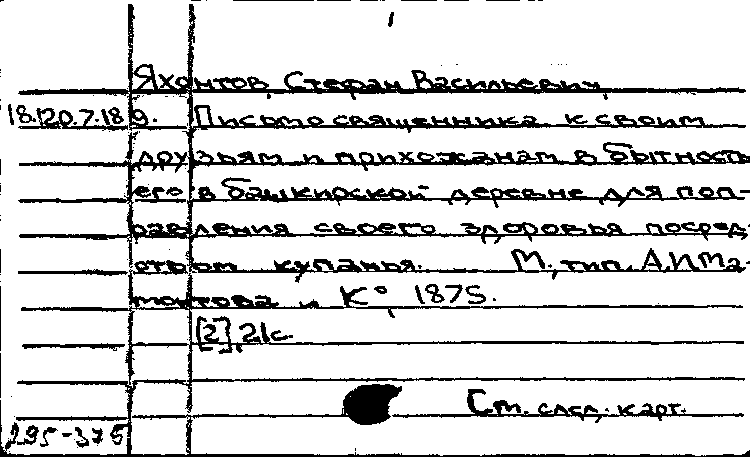 1
Яхонтов, Стефан Васильевич.
18.120.7.189. Письмо священника к своим
друзьям и прихожанам в бытность
его в башкирской деревне для поп-
равления своего здоровья посред-
ством купанья. - М., тип. А.И.Ма-
монтова и К°, 1875.
[2], 21с.
См. след. карт.
295-375